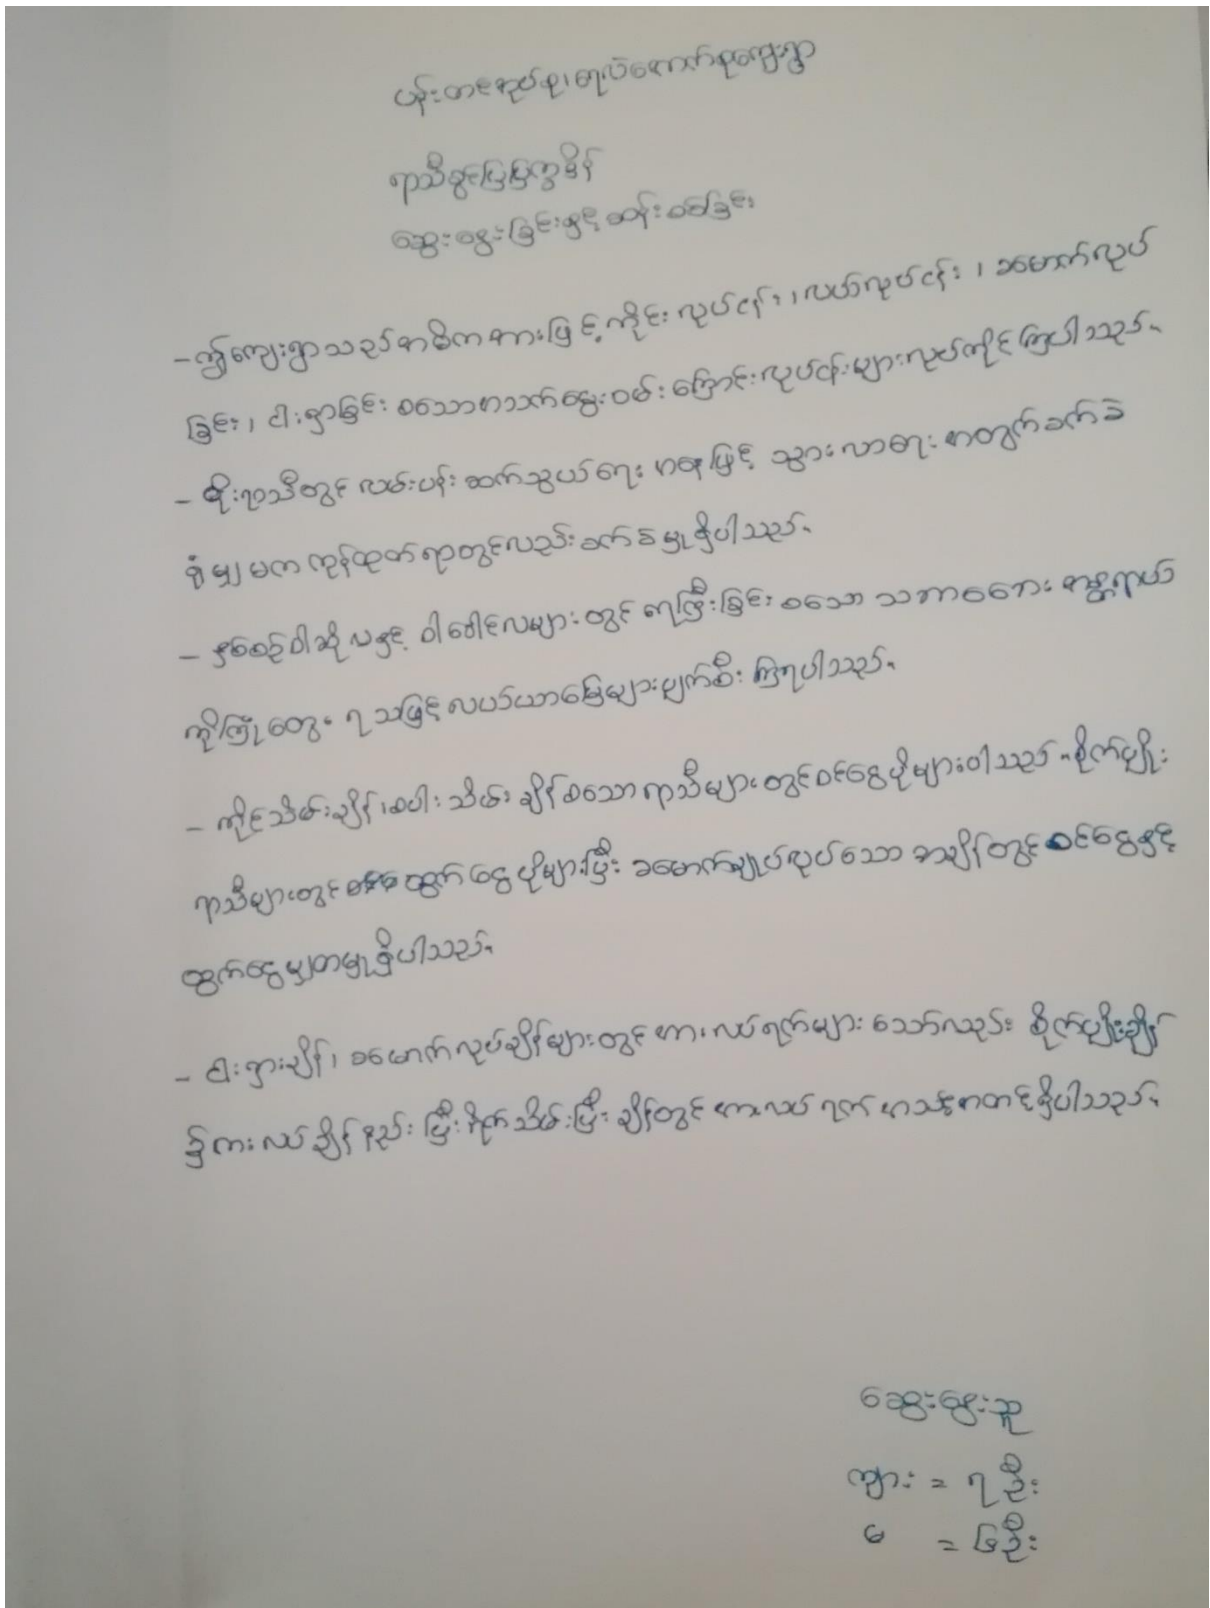 ပန်းတင အုပ်စု၊ ရေလဲကောက်စုကျေးရွာ
ရာသီခွင်ပြပြက္ခဒိန်
ဆွေးနွေးခြင်းနှင့် ဆန်းစစ်ခြင်း
- ဤကျေးရွာသည် အဓိကအားဖြင့် ကိုင်းလုပ်ငန်း၊ လယ်လုပ်ငန်း၊ ခမောက်လုပ်
ခြင်း၊ ငါးရှာခြင်း စသော အသက်မွေးဝမ်းကြောင်းလုပ်ငန်းများလုပ်ကိုင်ကြပါသည်။
- မိုးရာသီတွင် လမ်းပန်းဆက်သွယ်ရေး အနေဖြင့် သွားလာရေး အတွက်ခက်ခဲ
ရုံမျှ မက ကုန်ထုတ်ရာတွင်လည်းခက်ခဲမှုရှိပါသည်။
- နှစ်စဉ်ဝါဆိုလနှင့် ဝါခေါင်လများတွင် ရေကြီးခြင်းစသော သဘာဝဘေး အန္တရာယ်
ကိုကြုံတွေ့ ရသဖြင့် လယ်ယာမြေများပျက်စီးကြရပါသည်။
- ကိုင်းသိမ်းချိန်၊ စပါးသိမ်းချိန်စသော ရာသီများတွင်ဝင်ငွေပိုများပါသည်။ စိုက်ပျိုး
ရာသီများတွင် ထွက်ငွေပိုများပြီး ခမောက်ချုပ်လုပ်သော အချိန်တွင် ဝင်ငွေနှင့်
ထွက်ငွေမျှတမှုရှိပါသည်။
- ငါးရှားချိန်၊ ခမောက်လုပ်ချိန်များတွင် အားလပ်ရက်များသော်လည်း စိုက်ပျိုးချိန်
၌ အားလပ်ချိန်နည်းပြီး ရိတ်သိမ်းပြီးချိန်တွင် အားလပ်ရက် အသင့်အတင့်ရှိပါသည်။
ဆွေးနွေးသူ
ကျား = ၇ ဦး
မ = ၆ ဦး